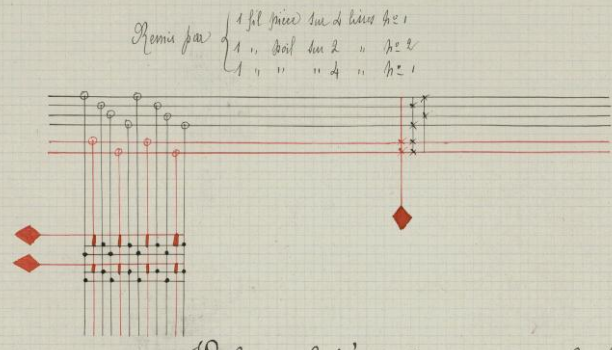 Remis par
1 fil pièce sur 4 lisses nº 1
1 " poil sur 2 " nº 2
1 " " " 4 " nº 1